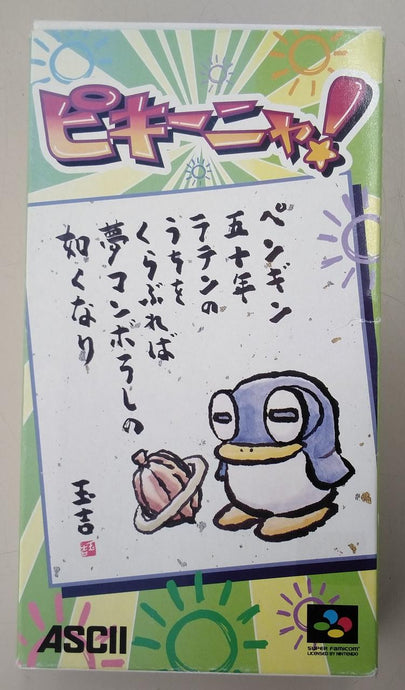 ピキーニャ!
ペンギン
五十年
ラテンの
うちを
くらぶれば
夢コンボろしの
如くなり
玉吉
ASCII
SUPER FAMICOM
LICENSED BY NINTENDO